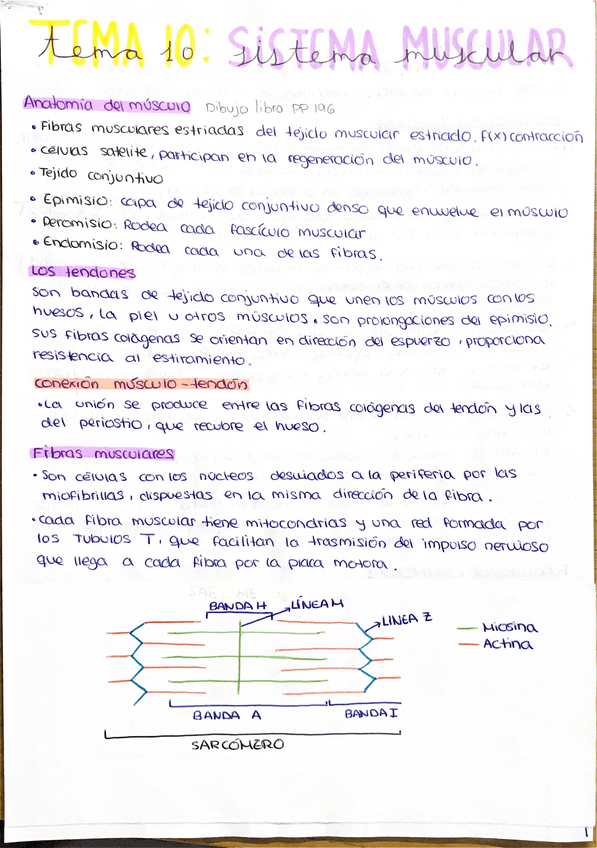 TEMA 10: SISTEMA MUSCULAR
tema 10 sistema muscular
Anatomía del músculo Dibujo libro pp 196.
• Fibras musculares estriadas del tejido muscular estriado. f(x) contracción
• células satelite, participan en la regeneración del músculo.
• Tejido conjuntivo
• Epimisio: capa de tejido conjuntivo denso que envuelve el músculo
• Peromisio: Rodea cada fascículo muscular
• Endomisio: Rodea cada una de las fibras.
Los tendones
son bandas de tejido conjuntivo que unen los músculos con los
huesos, la piel u otros músculos. son prolongaciones del epimisio.
sus fibras colágenas se orientan en dirección del espuerzo, proporciona
resistencia al estiramiento.
conexión músculo-tendón
• La unión se produce entre las fibras colágenas del tendón y las
del periostio, que recubre el hueso.
Fibras musculares
• Son células con los núcleos desviados a la periferia por las
miofibrillas, dispuestas en la misma dirección de la fibra.
• cada fibra muscular tiene mitocondrias y una red formada por
los TUBULOS T, que facilitan la trasmisión del impulso nervioso
que llega a cada fibra por la placa motora.
BANDA H
LÍNEA M
LINEA Z
Miosina
Actina
BANDA A
BANDA I
SARCÓMERO
1